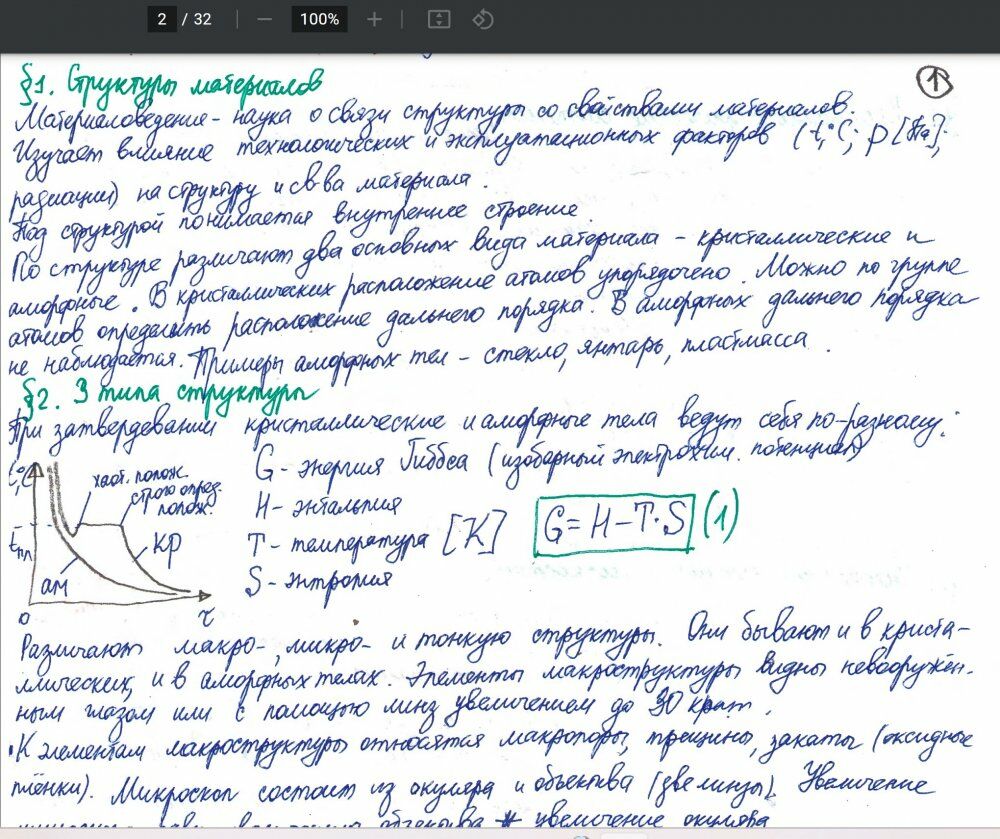 2 / 32 100%
§1. Структуры материалов
1
Материаловедение - наука о связи структуры со свойствами материалов.
Изучает влияние технологических и эксплуатационных факторов (t,°C; p [Па];
радиации) на структуру и св-ва материала.
Под структурой понимается внутреннее строение.
По структуре различают два основных вида материала - кристаллические и
аморфные. В кристаллических расположение атомов упорядочено. Можно по группе
атомов определить расположение дальнего порядка. В аморфных дальнего порядка
не наблюдается. Примеры аморфных тел - стекло, янтарь, пластмасса.
§2. 3 типа структуры
При затвердевании кристаллические и аморфные тела ведут себя по-разному:
t,°C
хаот. полож.
строго опред. полож.
tпл
ам
кр
0
τ
G - энергия Гиббса (изобарный электрохим. потенциал)
H - энтальпия
T - температура [K]
S - энтропия
G = H - T·S (1)
Различают макро-, микро- и тонкую структуры. Они бывают и в криста-
ллических, и в аморфных телах. Элементы макроструктуры видны невооружён-
ным глазом или с помощью линз увеличением до 30 крат.
К элементам макроструктуры относятся макропоры, трещины, закаты (оксидные
плёнки). Микроскоп состоит из окуляра и объектива (две линзы). Увеличение
объектива * увеличение окуляра